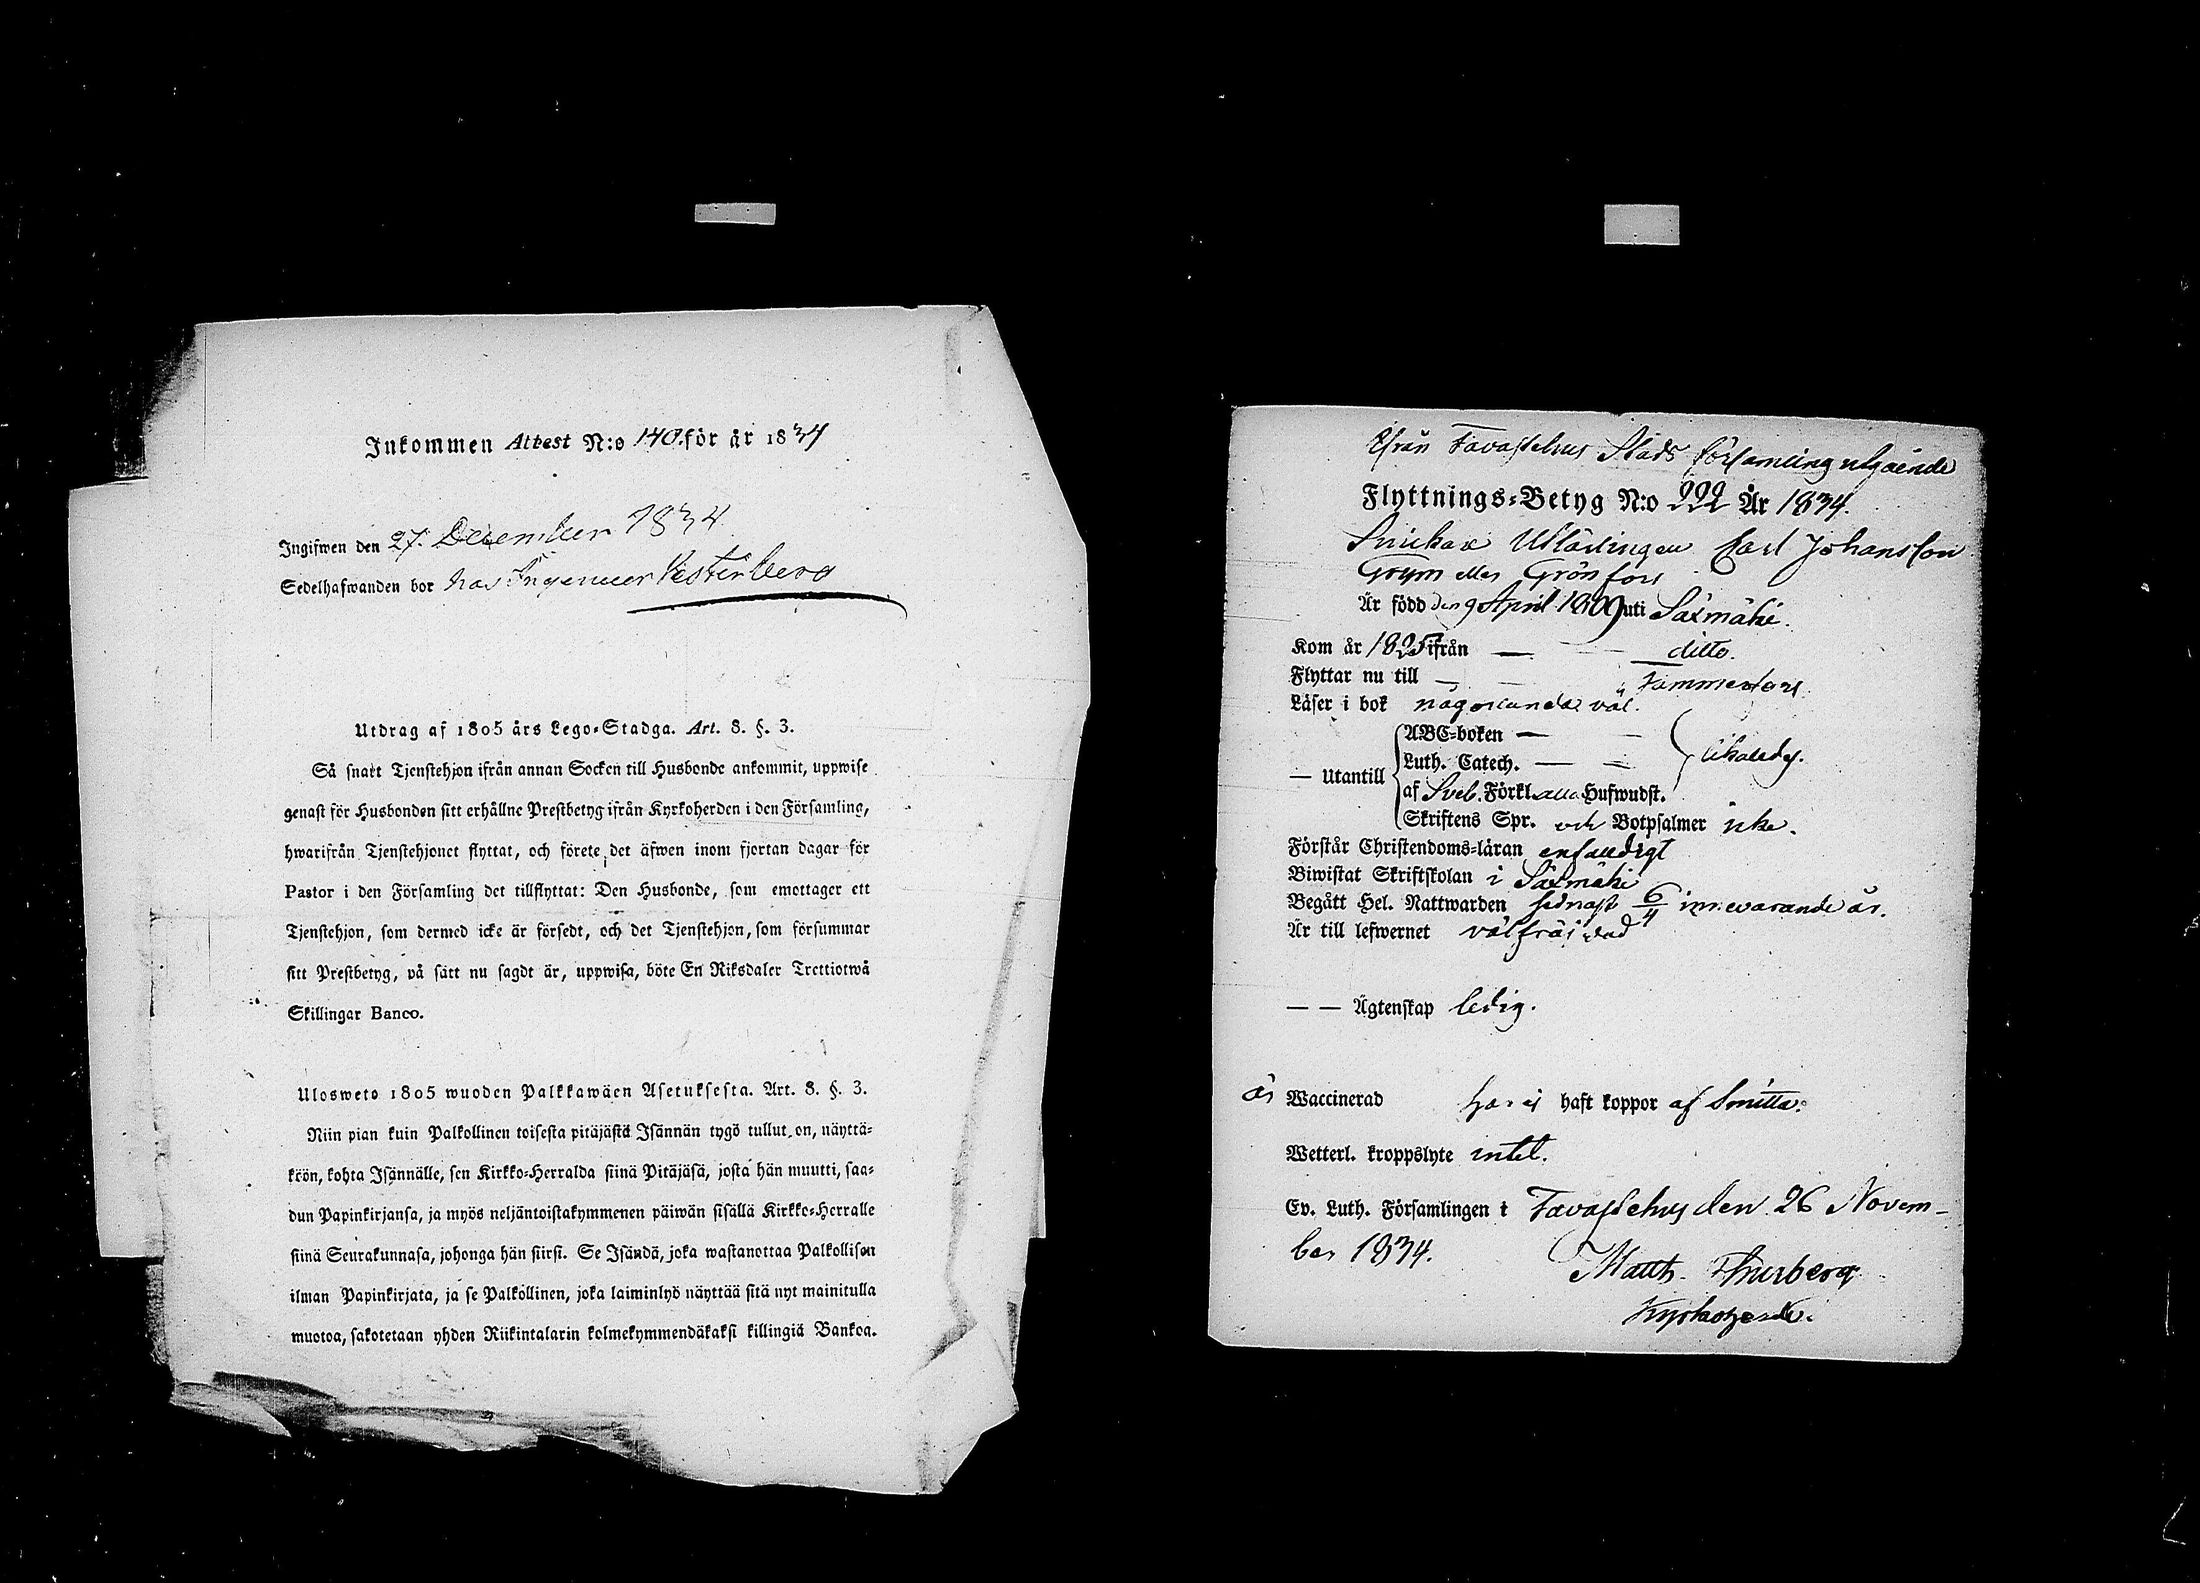 Inkommen Attest N:o 140. för år 1834
Ingifwen den 27. December 1834
Sedelhafwanden bor hos Ingenieur Vesterberg
Utdrag af 1805 års Lego-Stadga. Art. 8. §. 3.
Så snart Tjenstehjon ifrån annan Socken till Husbonde ankommit, uppwise
genast för Husbonden sitt erhållne Prestbetyg ifrån Kyrkoherden i den Församling,
hwarifrån Tjenstehjonet flyttat, och förete det äfwen inom fjortan dagar för
Pastor i den Församling det tillflyttat: Den Husbonde, som emottager ett
Tjenstehjon, som dermed icke är försedt, och det Tjenstehjon, som försummar
sitt Prestbetyg, på sätt nu sagdt är, uppwisa, böte En Riksdaler Trettiotwå
Skillingar Banco.
Ulosweto 1805 wuoden Palkkawäen Asetuksesta. Art. 8. §. 3.
Niin pian kuin Palkollinen toisesta pitäjästä Isännän tygö tullut on, näyttä-
köön, kohta Isännälle, sen Kirkko-Herralda siinä Pitäjäsä, josta hän muutti, saa-
dun Papinkirjansa, ja myös neljäntoistakymmenen päiwän sisällä Kirkko-Herralle
siinä Seurakunnasa, johonga hän siirsi. Se Isändä, joka wastanottaa Palkollisen
ilman Papinkirjata, ja se Palkollinen, joka laiminlyö näyttää sitä nyt mainitulla
muotoa, sakotetaan yhden Riikintalarin kolmekymmendäkaksi killingiä Bankoa.
Ifrån Tavastehus Stads församling utgående
Flyttnings-Betyg N:o 222 År 1834.
Snickare Utlärlingen Carl Johansson
Grym eller Grönfors
Är född den 9 April 1809 uti Säxmäki.
Kom år 1825 ifrån — — ditto.
Flyttar nu till — — Tammerfors
Läser i bok någorlunda väl.
ABC-boken — —
Luth. Catech. — — likaledes.
— Utantill
af Sveb. Förkl. alla Hufwudst.
Skriftens Spr. och Botpsalmer icke.
Förstår Christendoms-läran enfaldigt
Biwistat Skriftskolan i Säxmäki
Begått Hel. Nattwarden sednast 6/4 innevarande år.
Är till lefwernet välfräjdad
— — Ägtenskap ledig.
är Waccinerad har ej haft koppor af Smitta.
Wetterl. kroppslyte intet.
Ev. Luth. Församlingen i Tavastehus den 26 Novem-
ber 1834.
Matth.
Kyrkoherde.